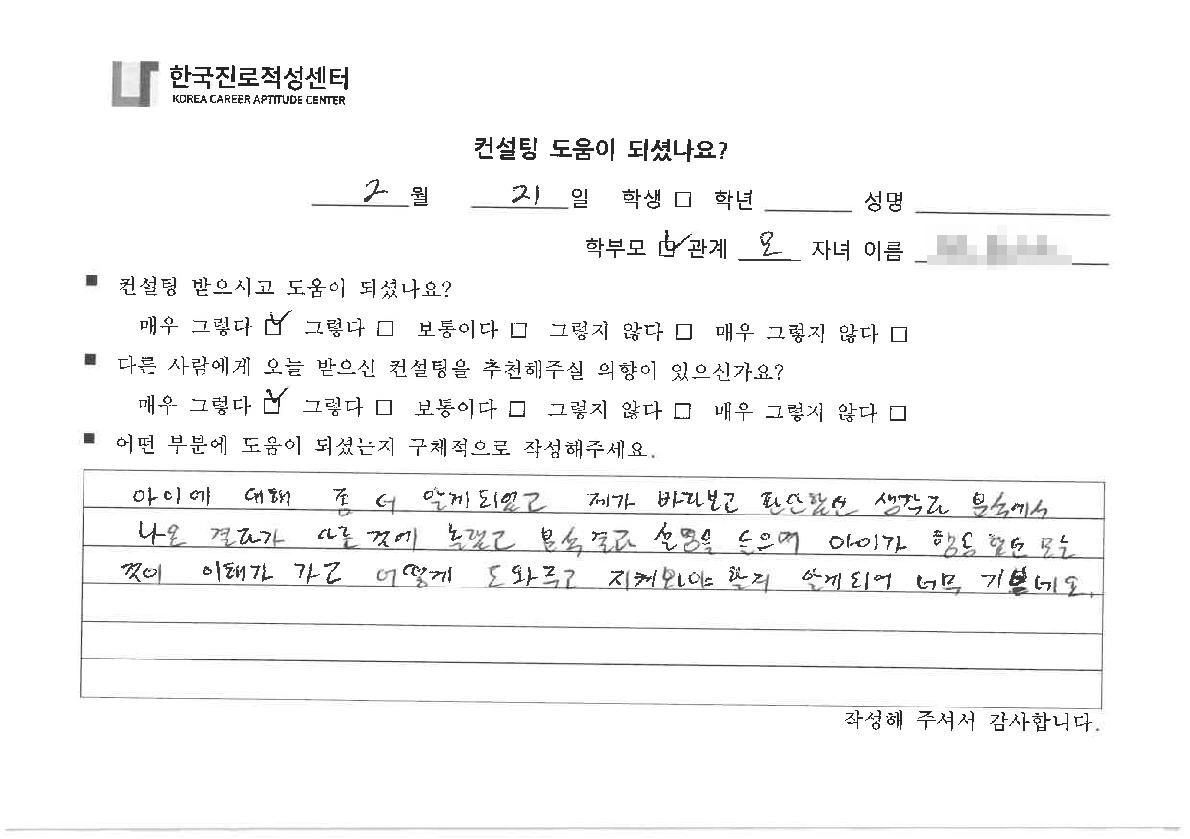 한국진로적성센터
KOREA CAREER APTITUDE CENTER
컨설팅 도움이 되셨나요?
2 월 21 일 학생 □ 학년 성명
학부모 ☑ 관계 모 자녀 이름
■ 컨설팅 받으시고 도움이 되셨나요?
매우 그렇다 ☑ 그렇다 □ 보통이다 □ 그렇지 않다 □ 매우 그렇지 않다 □
■ 다른 사람에게 오늘 받으신 컨설팅을 추천해주실 의향이 있으신가요?
매우 그렇다 ☑ 그렇다 □ 보통이다 □ 그렇지 않다 □ 매우 그렇지 않다 □
■ 어떤 부분에 도움이 되셨는지 구체적으로 작성해주세요.
아이에 대해 좀 더 알게되었고 제가 바라보고 판단했던 생각과 분석에서
나온 결과가 다른 것에 놀랬고 분석결과 설명을 들으며 아이가 행동했던 모든
것이 이해가 가고 어떻게 도와주고 지켜봐야 할지 알게되어 너무 기쁘네요.
작성해 주셔서 감사합니다.